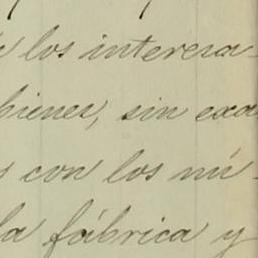 los interesa-
bienes, sin exa
s con los nú-
la fábrica y